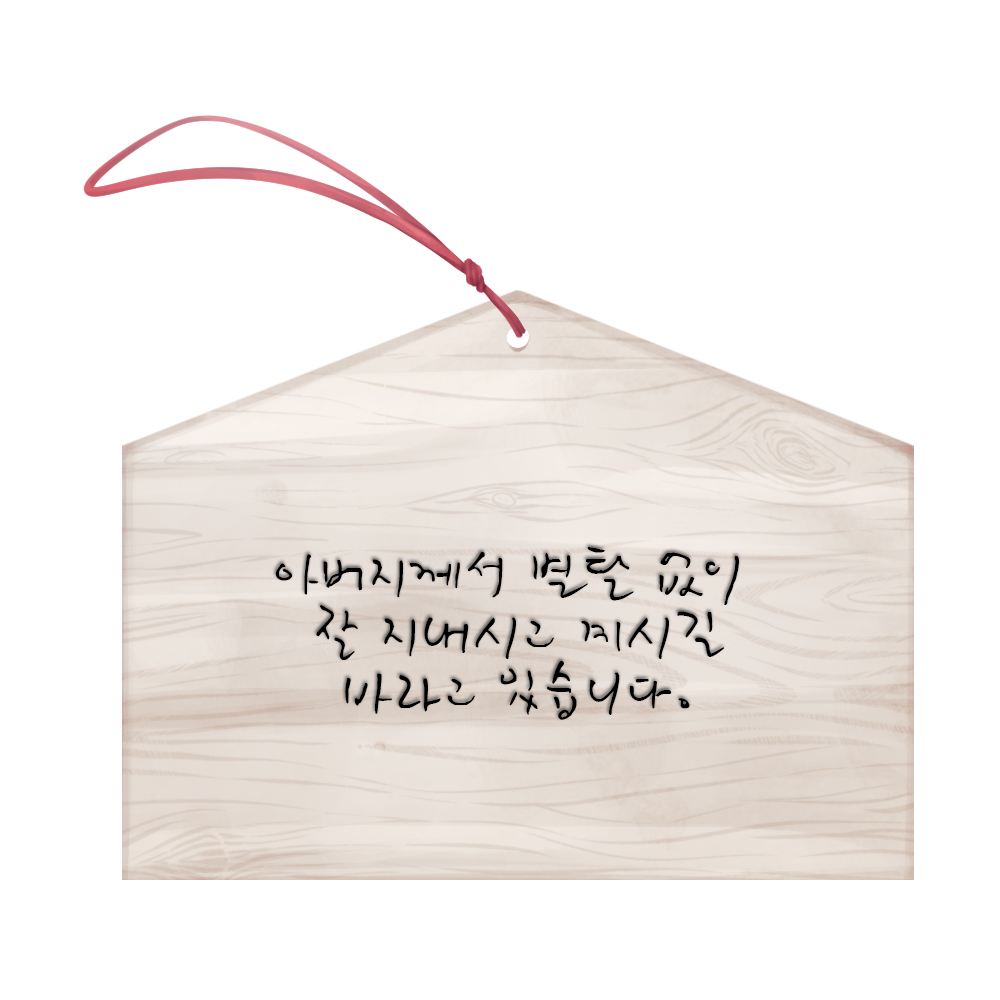 아버지께서 별탈 없이
잘 지내시고 계시길
바라고 있습니다.